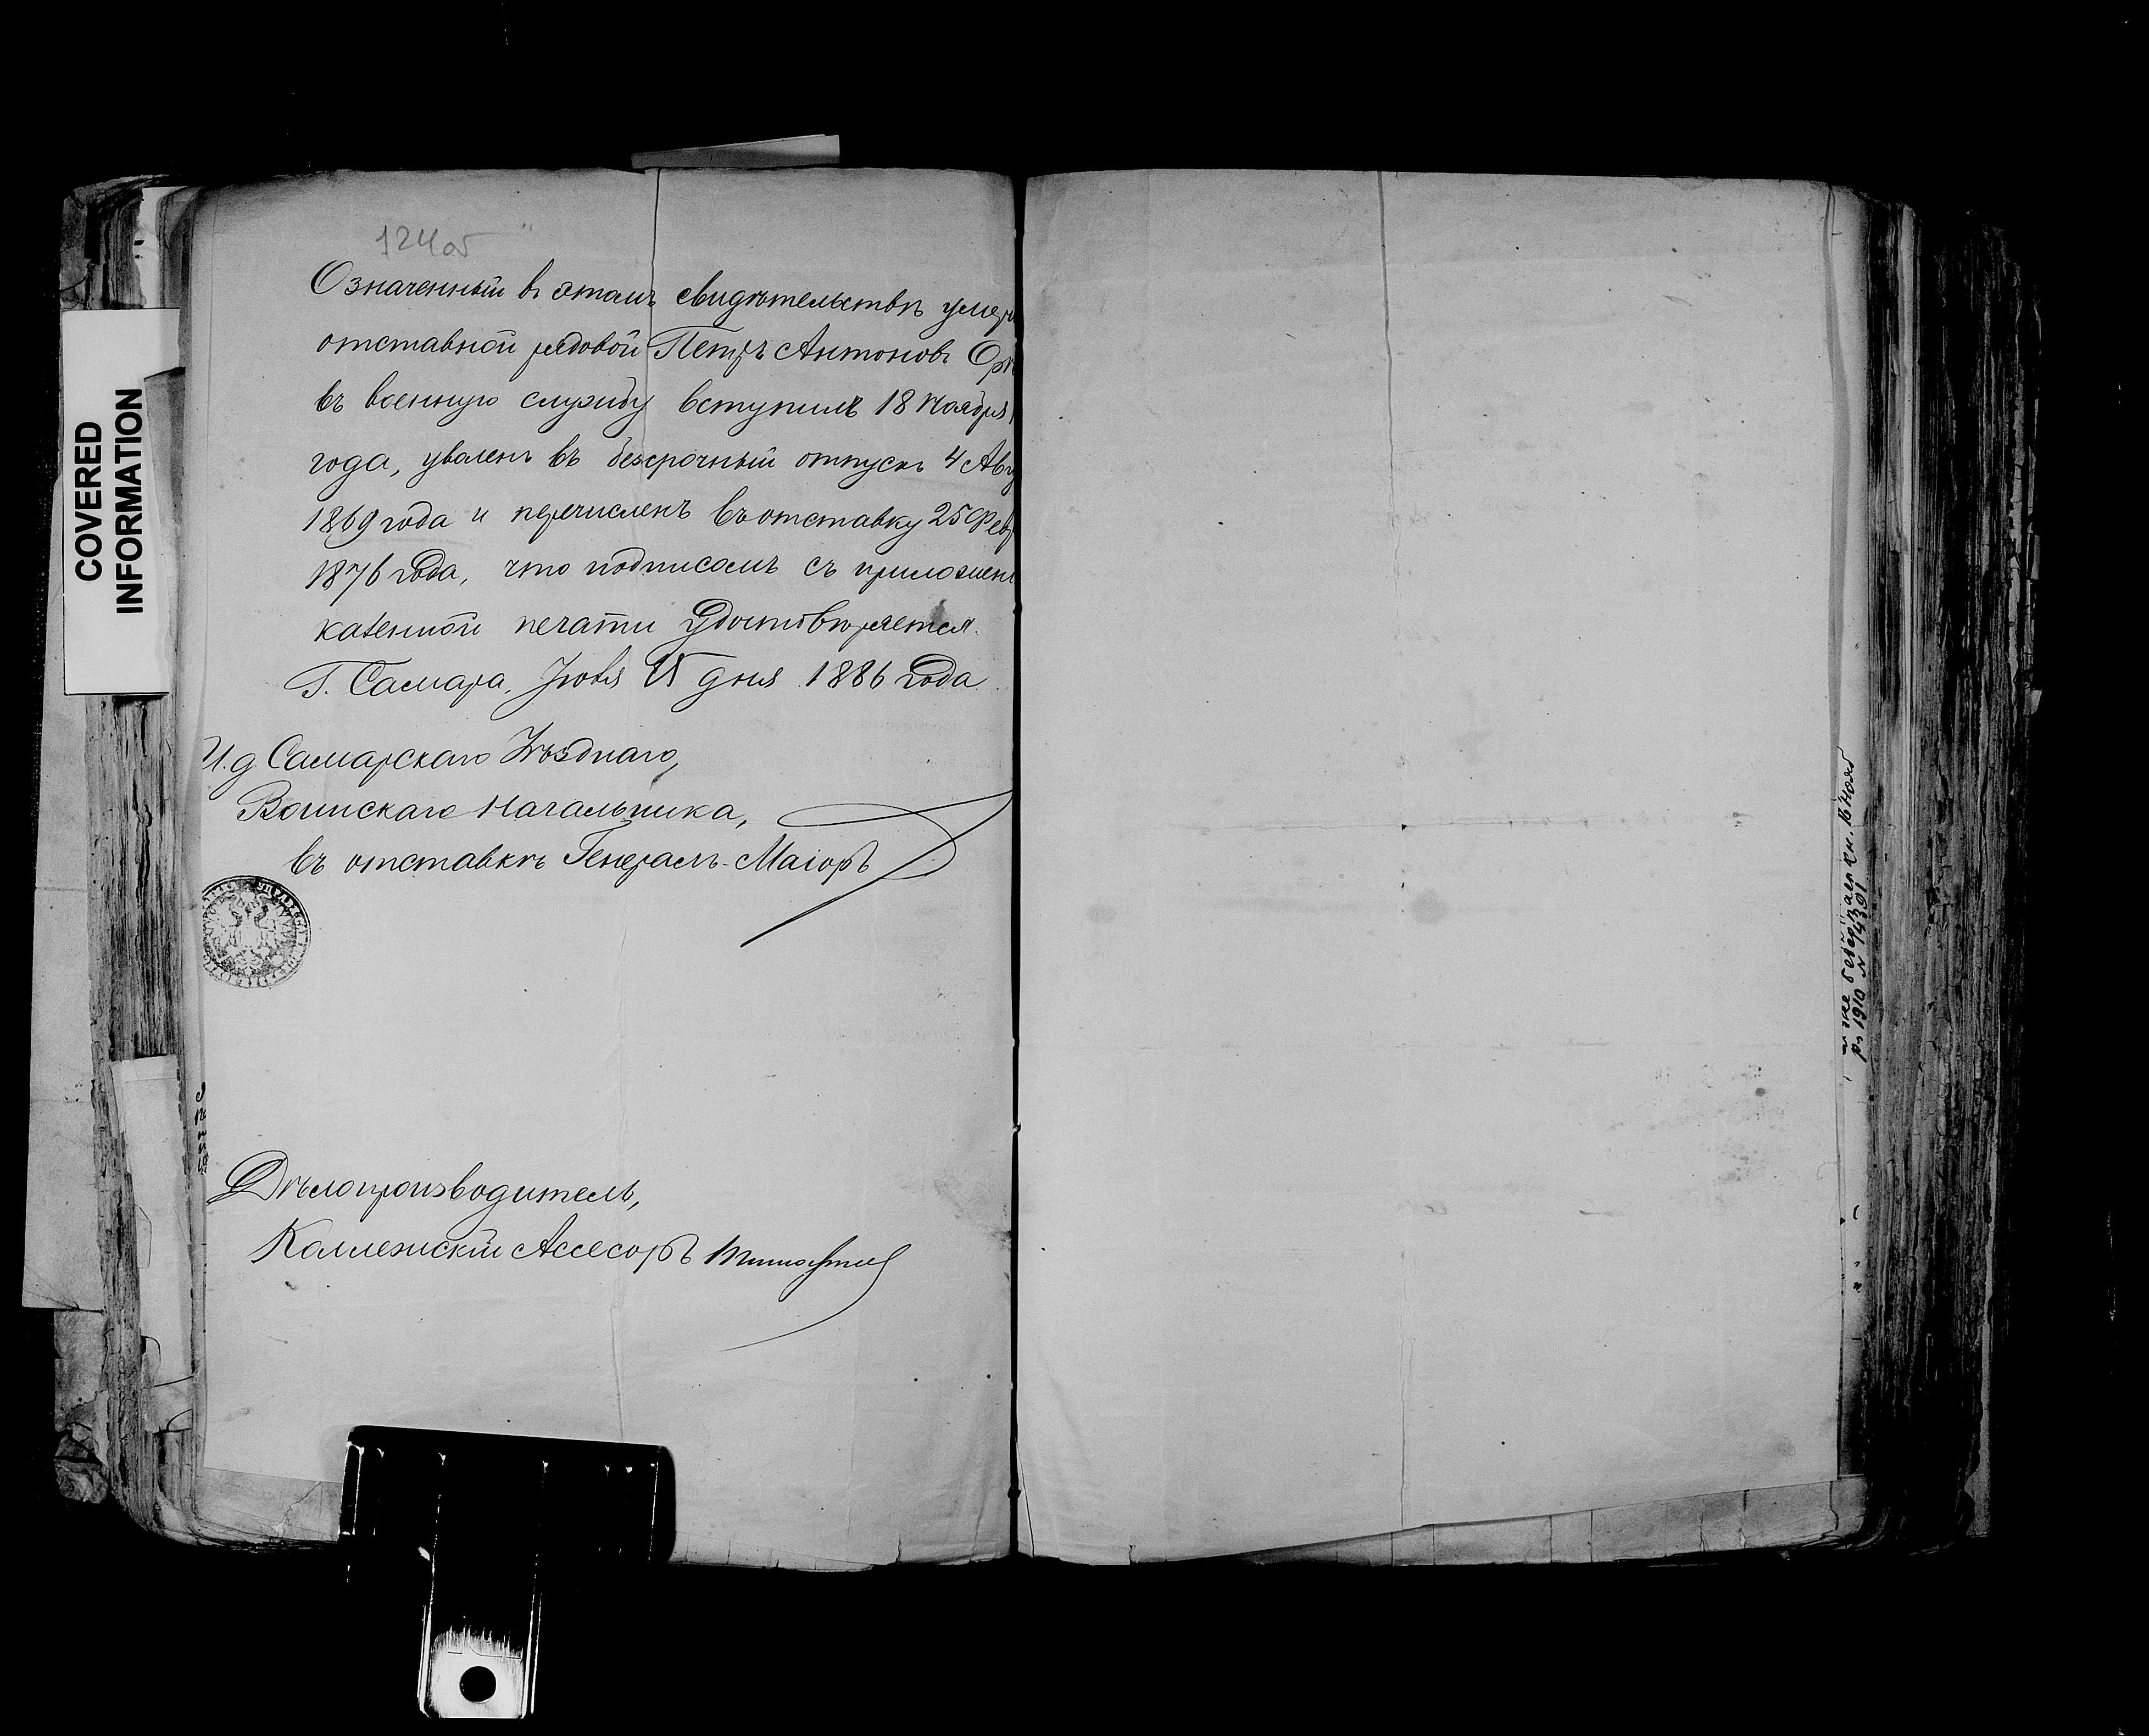 124 об
Означенный въ этомъ свидѣтельствѣ умер
отставной рядовой Петръ Антоновъ
въ военную службу вступилъ 18 Ноября
года, уволенъ въ безсрочный отпускъ 4 Авгу
1869 года и перечисленъ въ отставку 25 Февр
1876 года, что подписомъ съ приложен
казенной печати удостовѣряется.
Г. Самара, Іюля дня 1886 года
И.д. Самарскаго Уѣзднаго
Воинскаго Начальника,
въ отставкѣ Генералъ-Маіоръ
Дѣлопроизводитель,
Коллежскій Ассесоръ
COVERED
INFORMATION
1910 N 14391